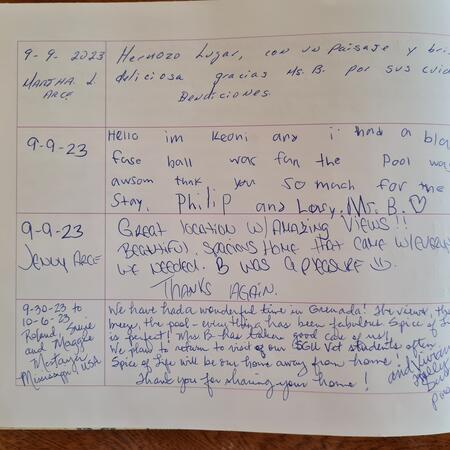 9-9-2023
MARTHA L.
ARCE
Hermozo Lugar, con un Paisaje y
deliciosa gracias Ms. B. por sus
Bendiciones.
9-9-23
Hello im Keoni and i had a
fuse ball was fun the Pool was
awsom thnk you so much for the
stay, Philip and Lary. Ms. B. ♡
9-9-23
JENNY ARCE
GREAT LOCATION W/ AMAZING VIEWS!!
BEAUTIFUL, SPACIOUS HOME THAT CAME W/
WE NEEDED. B WAS A PLEASURE ☺.
THANKS AGAIN.
9-30-23 to
10-6-23
Roland, Susie
and Maggie
Mississippi USA
We have had a wonderful time in Grenada! The views, the
breeze, the pool - everything has been fabulous. Spice of
is perfect! Mrs B. has taken good care of us!
We plan to return to visit of our SGU Vet students often
Spice of Life will be our home away from home!
Thank you for sharing your home!
and